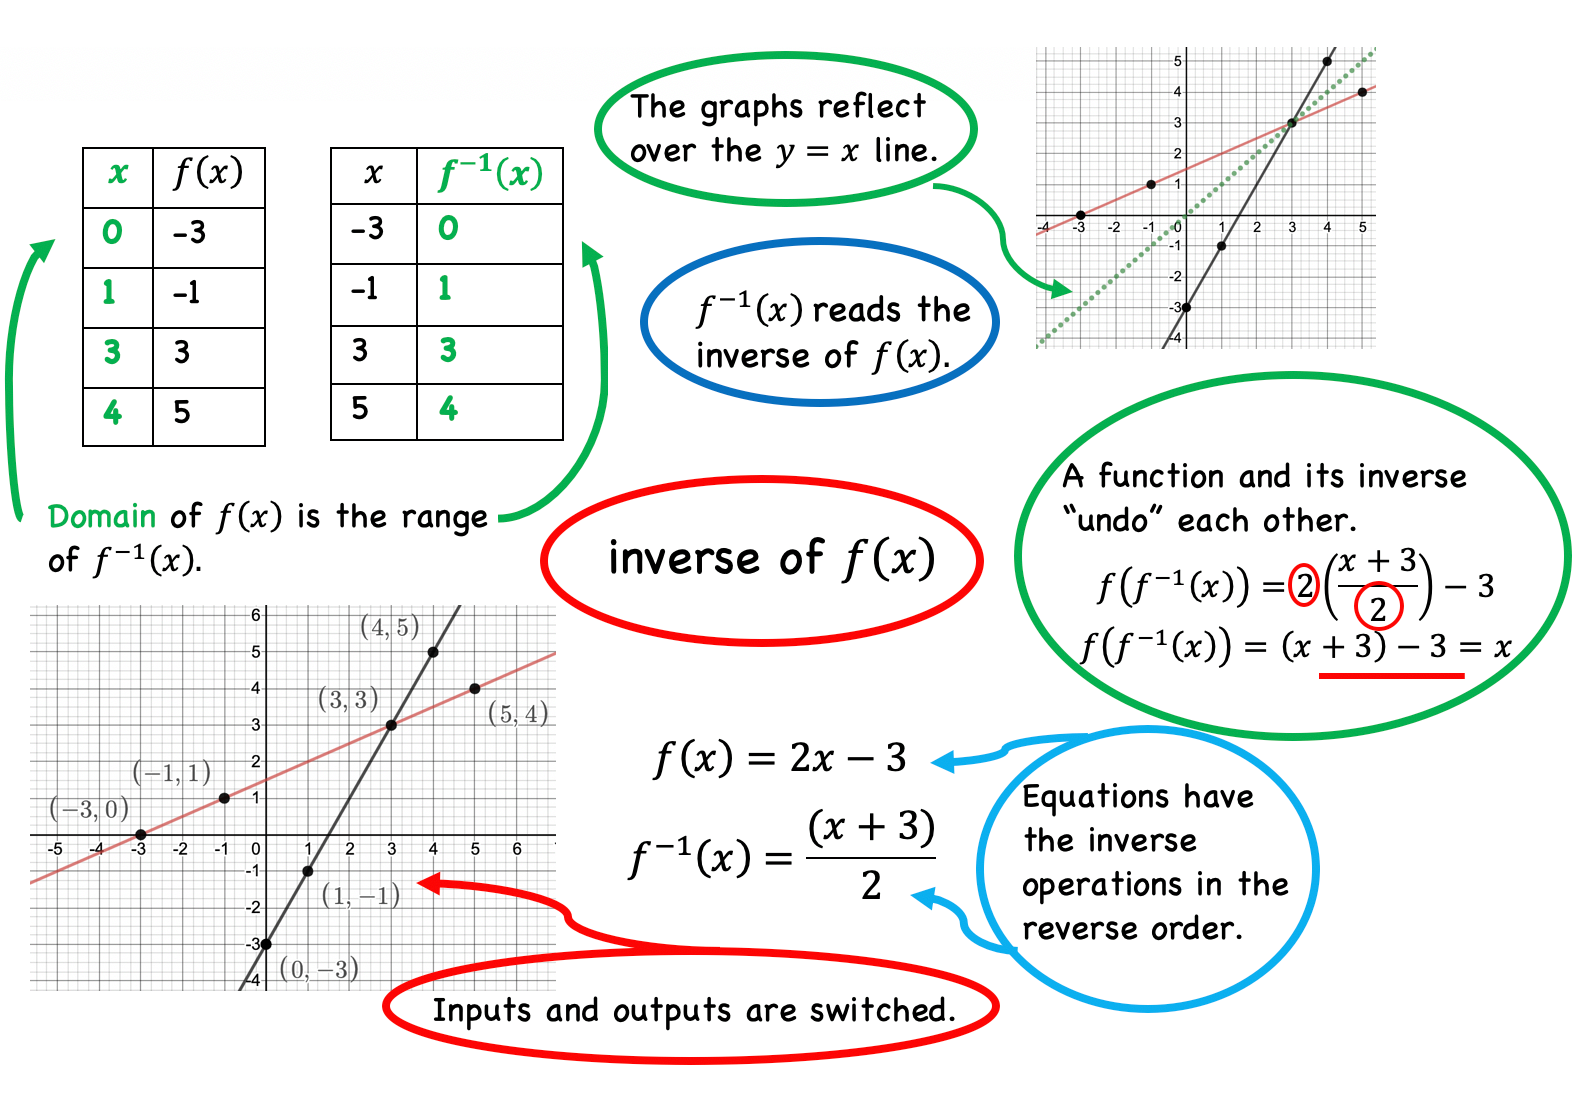 The graphs reflect
over the y = x line.
x f(x)
0 -3
1 -1
3 3
4 5
x f⁻¹(x)
-3 0
-1 1
3 3
5 4
5
4
3
2
1
-4 -3 -2 -1 0 1 2 3 4 5
-1
-2
-3
-4
f⁻¹(x) reads the
inverse of f(x).
Domain of f(x) is the range
of f⁻¹(x).
inverse of f(x)
A function and its inverse
“undo” each other.
f(f⁻¹(x)) = 2((x + 3)/2) − 3
f(f⁻¹(x)) = (x + 3) − 3 = x
6
(4, 5)
5
4
(5, 4)
(3, 3)
3
2
(−1, 1)
1
(−3, 0)
-5 -4 -3 -2 -1 0 1 2 3 4 5 6
-1
(1, −1)
-2
-3
(0, −3)
-4
f(x) = 2x − 3
f⁻¹(x) = (x + 3)/2
Equations have
the inverse
operations in the
reverse order.
Inputs and outputs are switched.